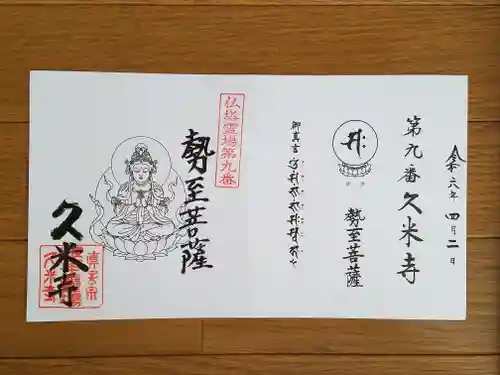 令和六年 四月二日
第九番 久米寺
サク
勢至菩薩
御真言
仏塔霊場第九番
勢至菩薩
久米寺